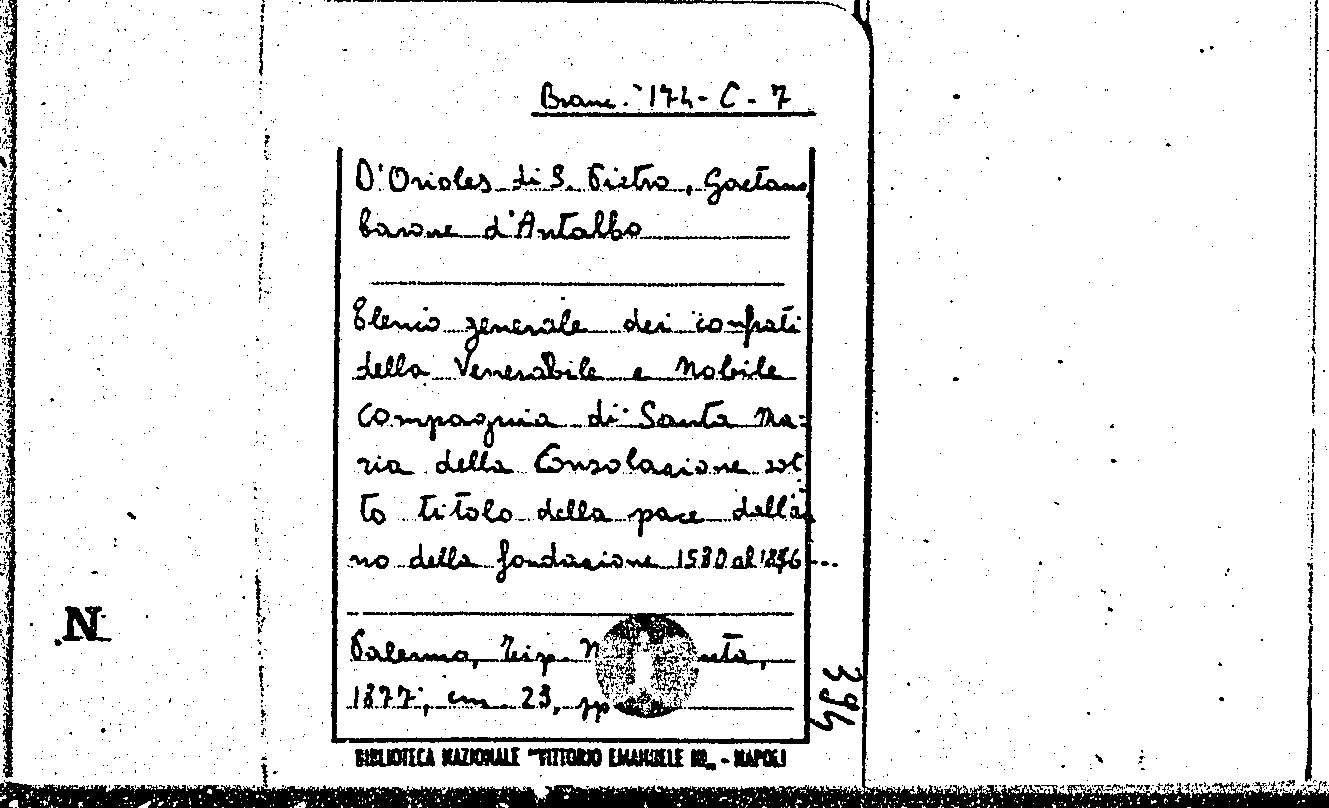 Branc. 174-C-7
D'Onioles di S. Pietro, Gaetano
barone d'Antalbo
Elenco generale dei confrati
della Venerabile e Nobile
Compagnia di Santa Ma=
ria della Consolazione sot
to titolo della pace dall'an
no della fondazione 1580 al 1876...
Palermo, Tip.
1877, cm. 23, pp
394
N
BIBLIOTECA NAZIONALE "VITTORIO EMANUELE III" - NAPOLI